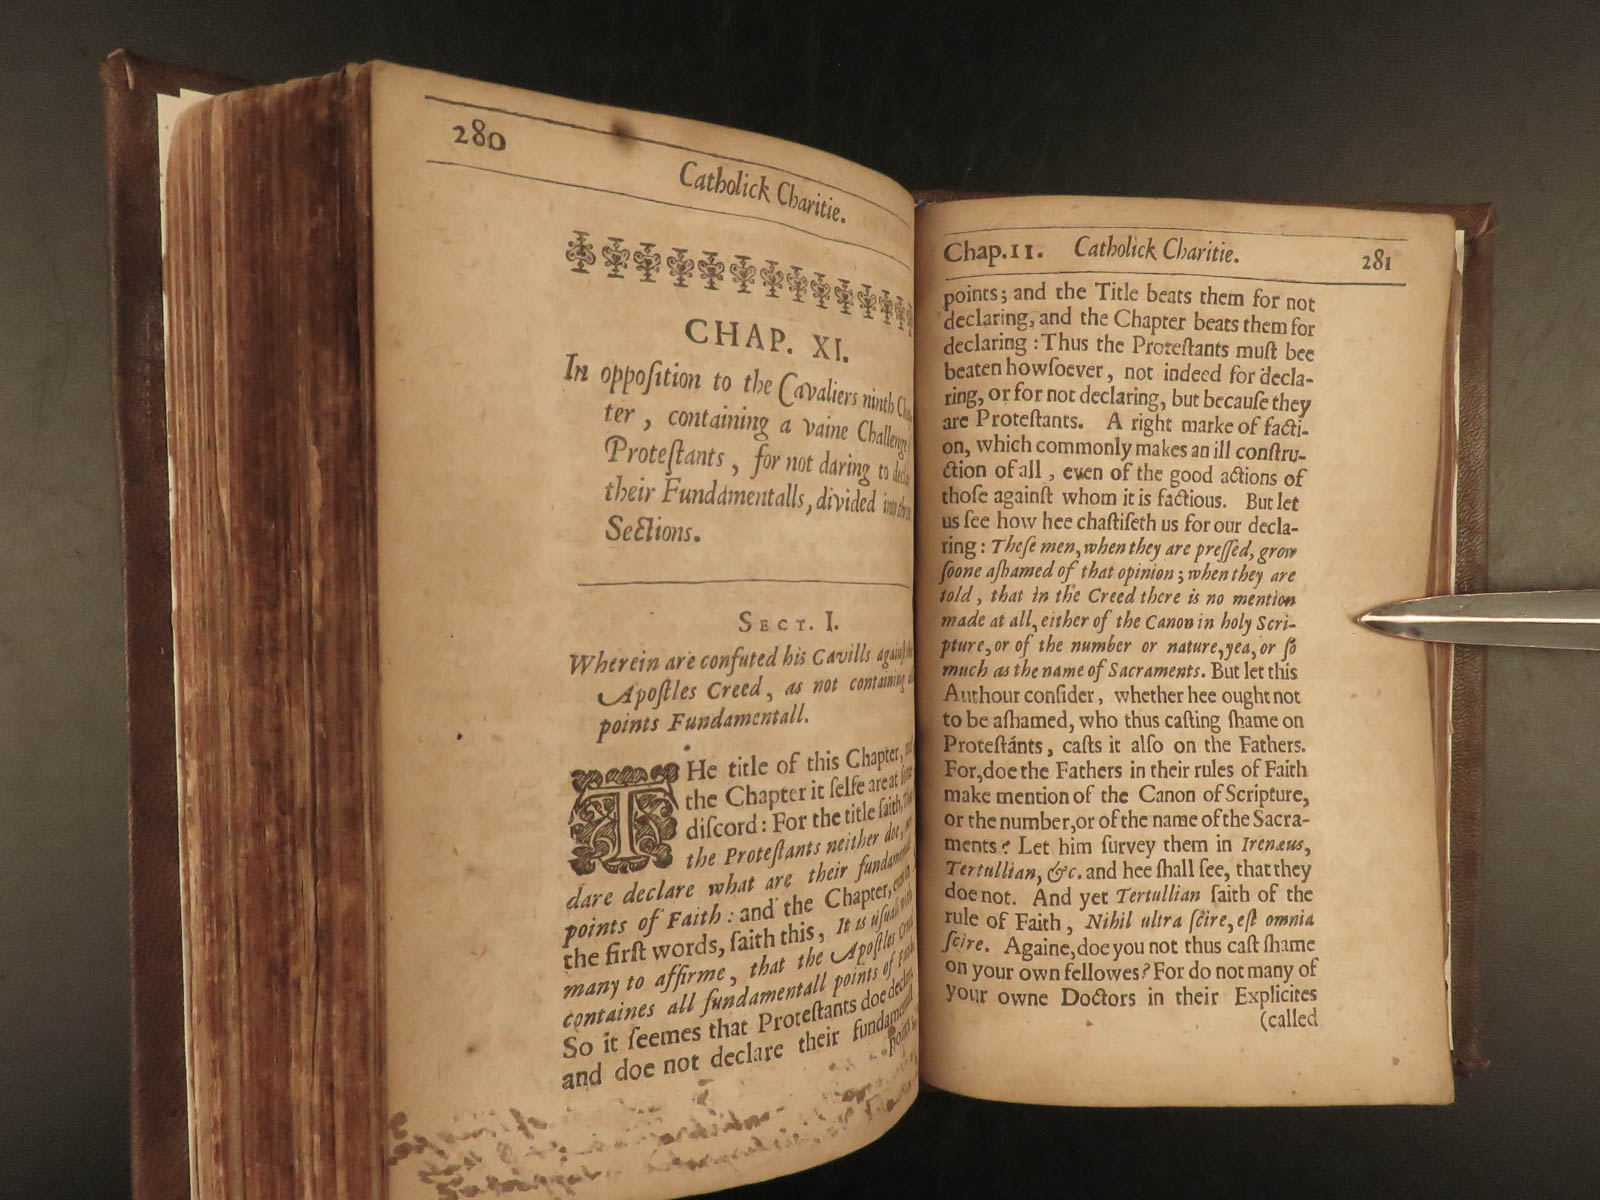 280
Catholick Charitie.
CHAP. XI.
In oppoſition to the Cavaliers ninth
ter, containing a vaine Challenge
Proteſtants, for not daring to
their Fundamentalls, divided into
Sections.
SECT. I.
Wherein are confuted his Cavills
Apoſtles Creed, as not containing
points Fundamentall.
THe title of this Chapter,
the Chapter it ſelfe are at
diſcord: For the title ſaith,
the Proteſtants neither doe,
dare declare what are their
points of Faith: and the Chapter,
the firſt words, ſaith this, It is
many to affirme, that the Apoſtles
containes all fundamentall points of
So it ſeemes that Proteſtants doe
and doe not declare their
Chap. 11. Catholick Charitie. 281
points; and the Title beats them for not
declaring, and the Chapter beats them for
declaring: Thus the Proteſtants muſt bee
beaten howſoever, not indeed for decla-
ring, or for not declaring, but becauſe they
are Proteſtants. A right marke of facti-
on, which commonly makes an ill conſtru-
ction of all, even of the good actions of
thoſe againſt whom it is factious. But let
us ſee how hee chaſtiſeth us for our decla-
ring: Theſe men, when they are preſſed, grow
ſoone aſhamed of that opinion; when they are
told, that in the Creed there is no mention
made at all, either of the Canon in holy Scri-
pture, or of the number or nature, yea, or ſo
much as the name of Sacraments. But let this
Authour conſider, whether hee ought not
to be aſhamed, who thus caſting ſhame on
Proteſtánts, caſts it alſo on the Fathers.
For, doe the Fathers in their rules of Faith
make mention of the Canon of Scripture,
or the number, or of the name of the Sacra-
ments? Let him ſurvey them in Irenæus,
Tertullian, &c. and hee ſhall ſee, that they
doe not. And yet Tertullian ſaith of the
rule of Faith, Nihil ultra ſcire, eſt omnia
ſcire. Againe, doe you not thus caſt ſhame
on your own fellowes? For do not many of
your owne Doctors in their Explicites
(called